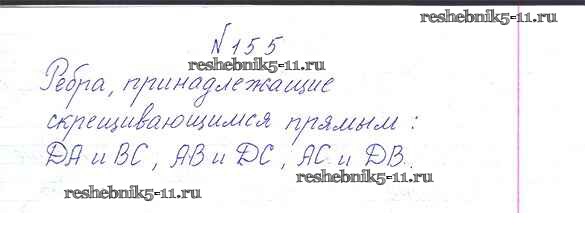 reshebnik5-11.ru
№155
reshebnik5-11.ru
Ребра, принадлежащие
скрещивающимся прямым:
DA и BC, AB и DC, AC и DB.
reshebnik5-11.ru
reshebnik5-11.ru